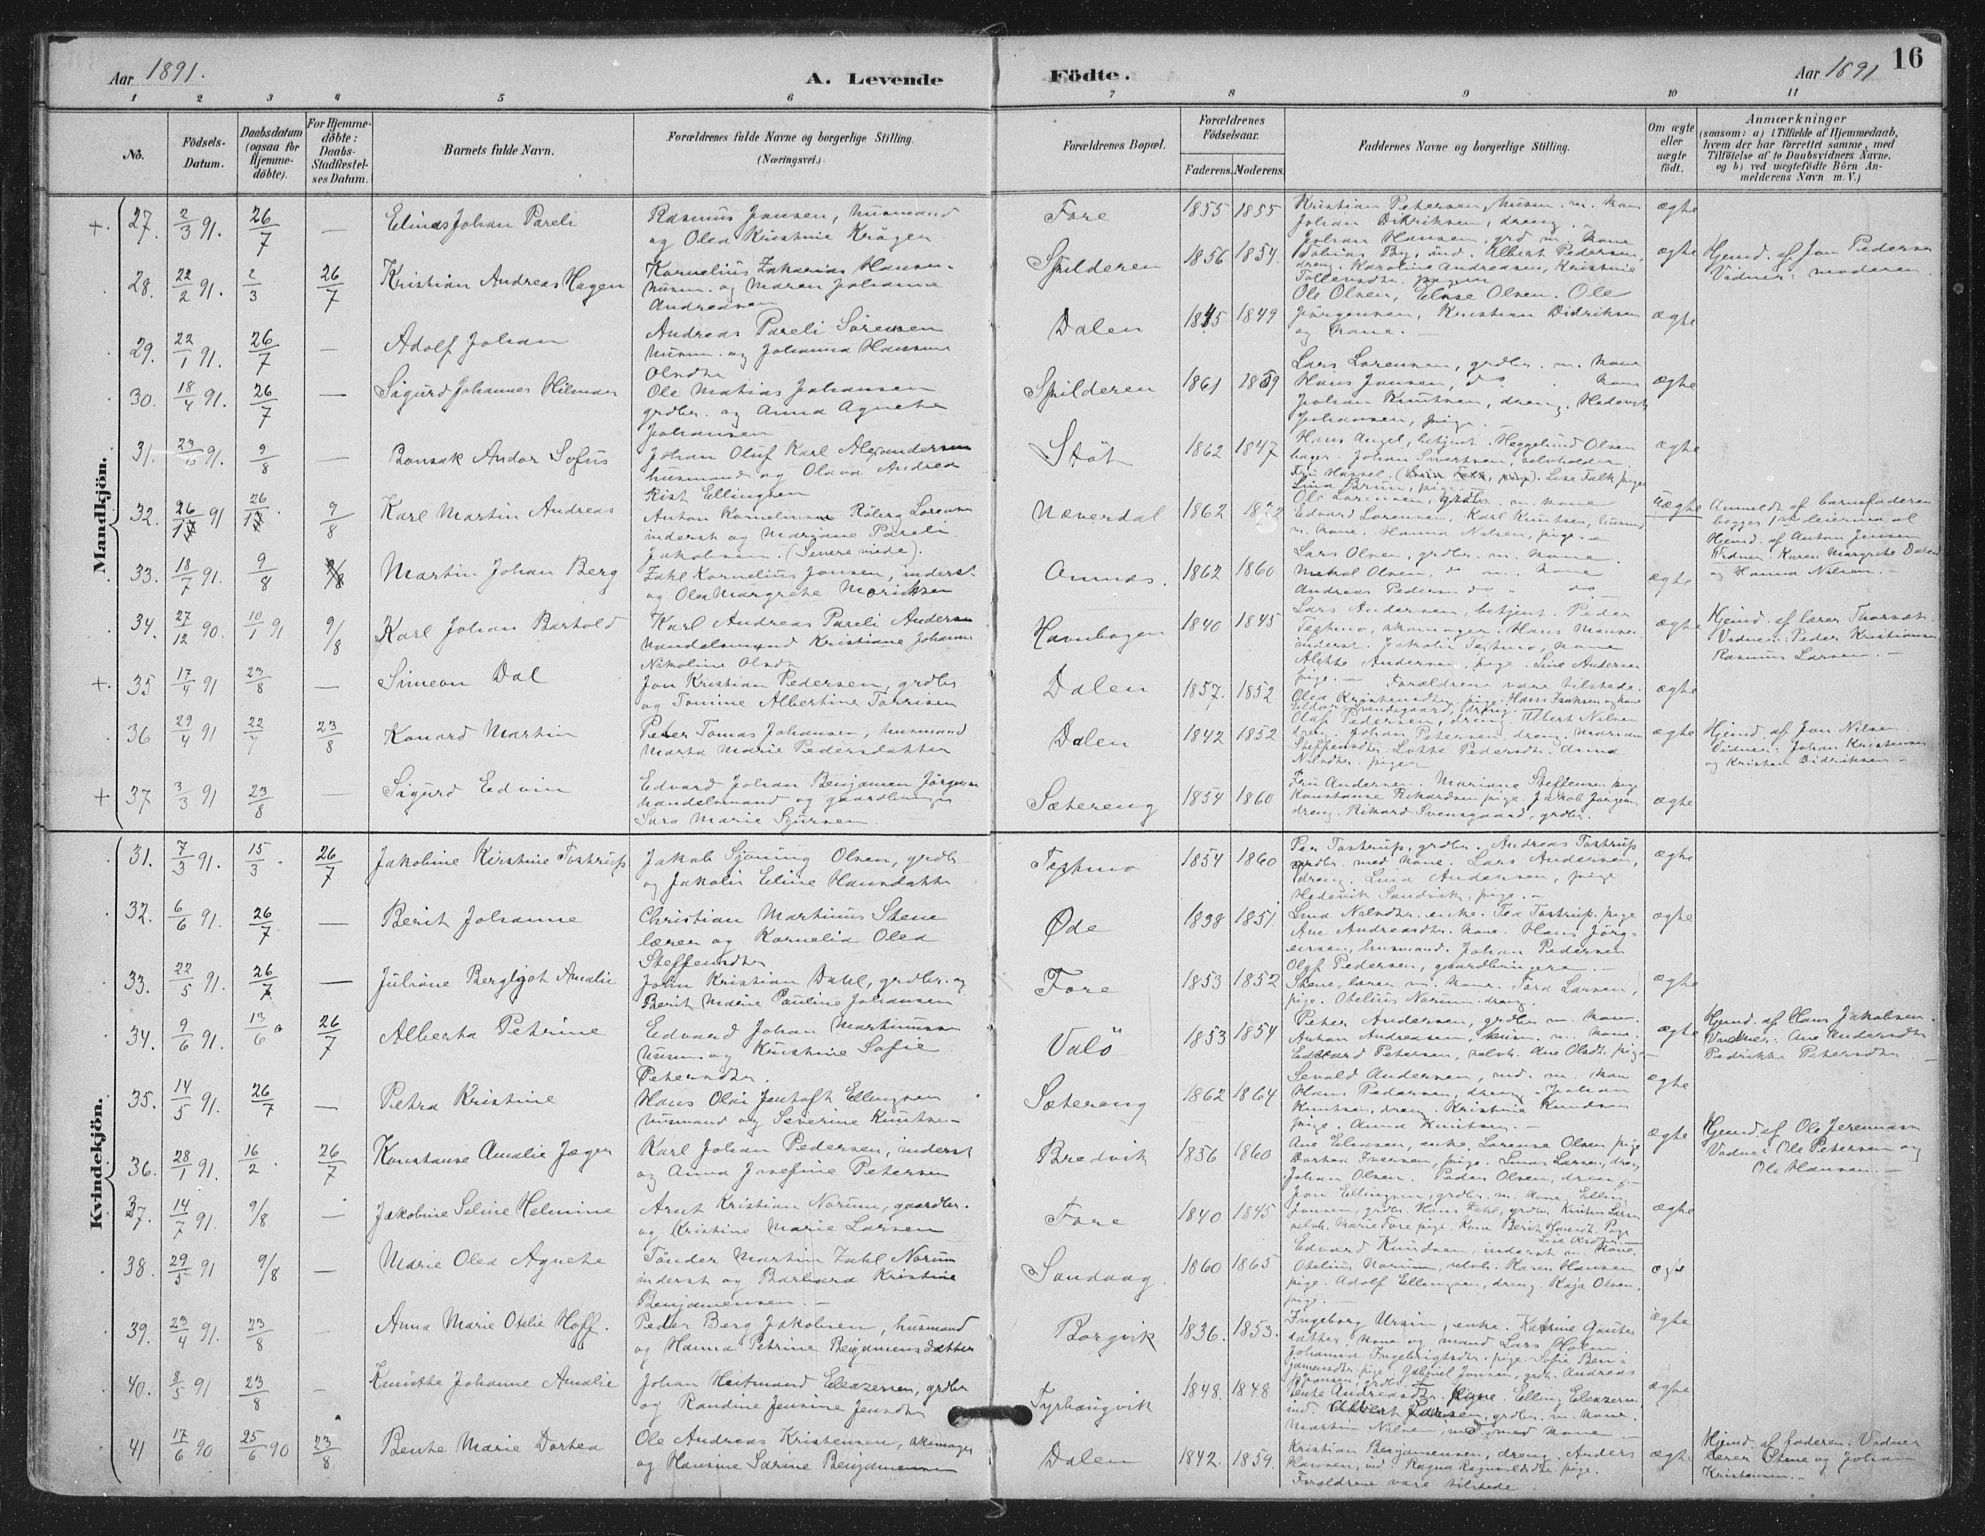 Aar 1891.
A. Levende
Födte.
Aar 1891
16
1 2 3 4 5 6 7 8 9 10 11
No.
Födsels-
Datum.
Daabsdatum
(ogsaa for
Hjemme-
döbte).
For Hjemme-
döbte:
Daabs-
Stadfæstel-
ses Datum.
Barnets fulde Navn.
Forældrenes fulde Navne og borgerlige Stilling.
(Næringsvei.)
Forældrenes Bopæl.
Forældrenes
Födselsaar.
Faderens. Moderens.
Faddernes Navne og borgerlige Stilling.
Om ægte
eller
uægte
födt.
Anmærkninger
(saasom: a) i Tilfælde af Hjemmedaab,
hvem der har forrettet samme, med
Tilföielse af to Daabsvidners Navne,
og b) ved uægtefödte Börn An-
melderens Navn m. V.)
Mandkjön.
+ 27. 2/3 91. 26/7 — Elias Johan Pareli
Rasmus Jansen, husmand
og Olea Kristine
Fore 1855 1855
Kristian Petersen, husm. m. kone
Johan Didriksen, dreng. -
ægte
28. 22/2 91. 2/3 26/7 Kristian Andreas Hagen
Kornelius Zakarias Hansen
husm. og Maren Johanna
Andreasen
Spilderen 1856 1854.
Johan Hansen, grd m. kone
Tobias By, ind. Albert Pedersen,
dreng. Karoline Andreasen, Kristine
ægte
Hjemd. af Jon Pedersen
Vidner: moderen.
29. 22/1 91. 26/7 — Adolf Johan
Andreas Pareli Sörensen
husm. og Johanna Hansine
Olsdtr
Dalen 1845 1849
Ole Olsen, Else Olsen. Ole
Jörgensen, Kristian Didriksen
og kone. —
ægte
30. 18/4 91. 26/7 — Sigurd Johannes Hilmar
Ole Matias Johansen
grdbr. og Anna Agnete
Johansen
Spilderen 1861 1859
Lars Lorensen, grdbr. m. kone
Hans Jansen, do. kone
Johan Knutsen, dreng. Hedevik
Johansen, pige. —
ægte
31. 23/6 91. 9/8 — Bonsak Andor Sofus
Johan Oluf Karl Alexandersen
husmand og Olava Andrea
Kist Ellingsen
Stöt 1862 1847
Hans Angel, betjent. Heggelund Olsen
Johan
Lise Falk pige
ægte
32. 26/12 91 26/12. 9/8 Karl Martin Andreas
Anton Kornelius Röberg Lorensen
inderst og Mariane Pareli
Jakobsen. (Severe vide).
Næverdal 1862
Ole Lorensen, grdbr. m. kone
Edvard Lorensen. Karl Knutsen, husmd
m. kone. Hanna Nilsen, pige. —
uægte
Anmeldt af barnefaderen
begges 1ste leiermaal
Hjemd. af Anton Jensen
Vidner: Karen Margrete Dalen
og Hanna Nilsen. —
33. 18/7 91. 9/8 Martin Johan Berg
Zahl Kornelius Jansen, inderst
og Olea Margrete Moritsen
Amnæs. 1862 1860
Lars Olsen, grdbr. m. kone
Olsen, do m. kone
Andreas Pedersen do " do
ægte
34. 27/12 90. 10/1 91 9/8 Karl Johan Bartold
Karl Andreas Pareli Andersen
Handelsmand Kristiane Johanne
Nikoline Olsdtr
Havnbogen 1840 1845
Lars Andersen, betjent. Peder
Tegtmo, skomager. Hans Hansen
inderst. Jakolie Tegtmo, kone
Alette Andersen, pige. Line Andersen
pige. —
ægte
Hjemd. af lærer Thorset
Vidner: Peder Kristiansen
Rasmus Larsen. —
+. 35 17/4 91 23/8 — Simeon Dal
Jon Kristian Pedersen, grdbr
og Tomine Albertine Torrisen
Dalen 1857. 1852
Forældrene vare tilstede.
Olea Kristensdtr, pige. Hans Isaksen og kone
ægte
36 29/4 91 22/7 23/8 Konard Martin
Peter Tomas Johansen, husmand
Marta Marie Pedersdatter
Dalen 1842 1852
Olaf Pedersen, dreng. Albert Nilsen
dreng. Johan Petersen dreng. Marian
Steffensdtr. Lotte Pedersdtr. Anna
Nilsdtr. piger
ægte
Hjemd. af Jon Nilsen
Vidner: Johan Kristensen
og Kristen Didriksen —
+ 37 3/3 91 23/8 — Sigurd Edvin
Edvard Johan Benjamen Jörgensen
handelsmand og gaardbruger
Sara Marie Sjursen
Sætereng 1854 1860
Fru Andersen. Mariane Steffensen pige
Konstanse Rikardsen pige. Jakob Jörgensen
dreng. Rikard Svensgaard, grdbr.
ægte
Kvindekjön.
31. 7/3 91. 15/3. 26/7 Jakobine Kirstine Tostrup
Jakob Sjöning Olsen, grdbr
og Jakolie Eline Hansdatter
Tegtmo 1854 1860
Per Tostrup, grdbr. Andreas Tostrup
grdbr. med kone. Lars Andersen,
dreng. Lina Andersen, pige
Hedevik Sandvik, pige. —
ægte
32. 6/6 91. 26/7 — Berit Johanne
Christian Martinus Stene
lærer og Kornelia Olea
Steffensdtr
Øde 1838 1851
Lina Nilsdtr. enke. Tea Tostrup. pige
Ane Andreasdtr. kone. Hans Jörg-
ensen, husmand. Johan Pedersen
Olaf Pedersen, gaardbrugere. —
ægte
33. 22/5 91. 26/7 — Juliane Bergljot Amalie
John Kristian Dahl, grdbr. og
Berit Marie Pauline Johansen
Fore 1853 1852
Stene, lærer m. kone. Tora Larsen,
pige. Otelius Norum. dreng.
ægte
34. 9/6 91. 13/6 26/7 Alberta Petrine
Edvard Johan Martinussen
husm. og Kristine Sofie
Petersdtr.
Valö 1853 1854
Peter Andersen, grdbr m. kone.
Anton Andreassen, husm. m. kone.
Edvard Petersen, selvb. Ane Olsdtr. pige
ægte
Hjemd. af Hans Jakobsen.
Vidner: Ane Andersdtr
Pedrikke Petersdtr —
35. 14/5 91. 26/7 — Petra Kristine
Hans Olai Jentoft Ellingsen
husmand og Severine Knutsen —
Sætereng 1862 1864
Sevald Andersen, ind. m. kone
Hans Pedersen, dreng. Johan
Knutsen, dreng. Kristine Knudsen
pige. Anna Knutsen. —
ægte
36. 28/1 91. 16/2. 26/7 Konstanse Amalie Jæger
Karl Johan Pedersen, inderst
og Anna Josefine Petersen
Bredvik 1856 1860
Ane Eliasen, enke. Lorense Olsen pige
Dortea Iversen, pige. Linus Larsen, dreng
Johan Olsen. Peder Olsen, dreng. —
ægte
Hjemd. af Ole Jeremiasen
Vidner Ole Petersen og
Ole Hansen. —
37. 14/7 91. 9/8 — Jakobine Seline Helmine
Arnt Kristian Norum, gaardbr.
og Kristine Marie Larsen
Fore 1840 1845
Jon Ellingsen, grdbr. m. kone. Elling
Jonsen, grdbr. Hans Zahl, grdbr. Kristen Larsen
selvb. Marie Fore pige. Kone Berit
ægte
38. 29/5 91 9/8 — Marie Olea Agnete
Tönder Martin Zahl Norum
inderst og Barbara Kristine
Benjamensen. —
Sandaag. 1860 1865
Edvard Knudsen, inderst m. kone.
Otelius Norum, selvb. Karen Hansen
pige. Adolf Ellingsen, dreng. Kaja Olsen,
pige. —
ægte
39. 23/4 91. 23/8 — Anna Marie Otelie Hoff.
Peder Berg Jakobsen, husmand
og Hanna Petrine Benjamensdatter
Borgvik 1836. 1853.
Ingeborg Ursin, enke. Katrine
datter, kone og mand Lars Holm
Johanna Ingebrigtsdtr. pige. Sofie Ben-
jamensdtr. pige.
ægte
40. 8/5 91 23/8 — Knutte Johanne Amalie
Johan Heitmand Eleazersen, grdbr
og Randine Jensine Jensdtr
Tyrhaugvik 1848. 1848
Gabriel Jensen, grdb. Andreas
Andreasdtr. Elling Eleazersen
ind. Albert grdbr. m. kone.
Martin Nilsen, ind. med kone —
ægte
41 17/6 90 25/6 90 23/8 Bente Marie Dortea
Ole Andreas Kristensen, skomager
og Hansine Sarine Benjamensen
Dalen 1842. 1859.
Kristian Benjamensen, dreng. Anders
Hansen, ind. Ragna Ragnvaldsdtr pige.
Forældrene vare tilstede
ægte
Hjemd. af faderen. Vidner
lærer Stene og Johan
Kristensen. —